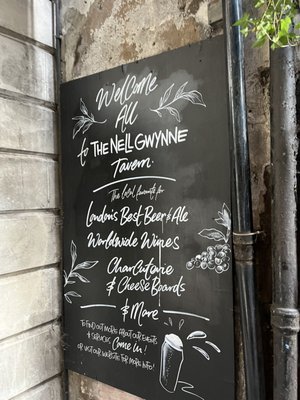 Welcome
All
to THE NELL GWYNNE
Tavern.
The local favourite for
London's Best Beer & Ale
Worldwide Wines
Charcuterie
& Cheese Boards
& More
TO FIND OUT MORE ABOUT OUR EVENTS
& SERVICES, Come in!
OR VISIT OUR WEBSITE FOR MORE INFO!